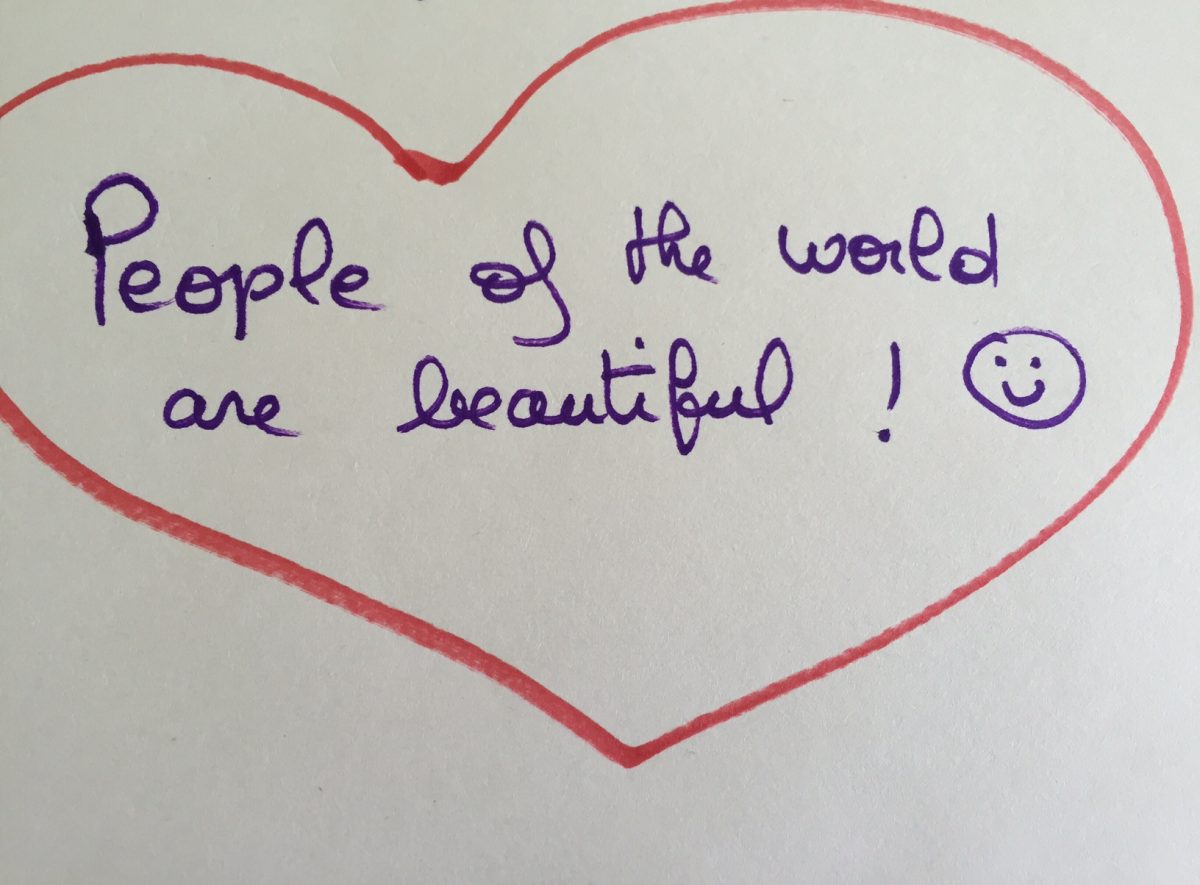 People of the world
are beautiful ! ☺